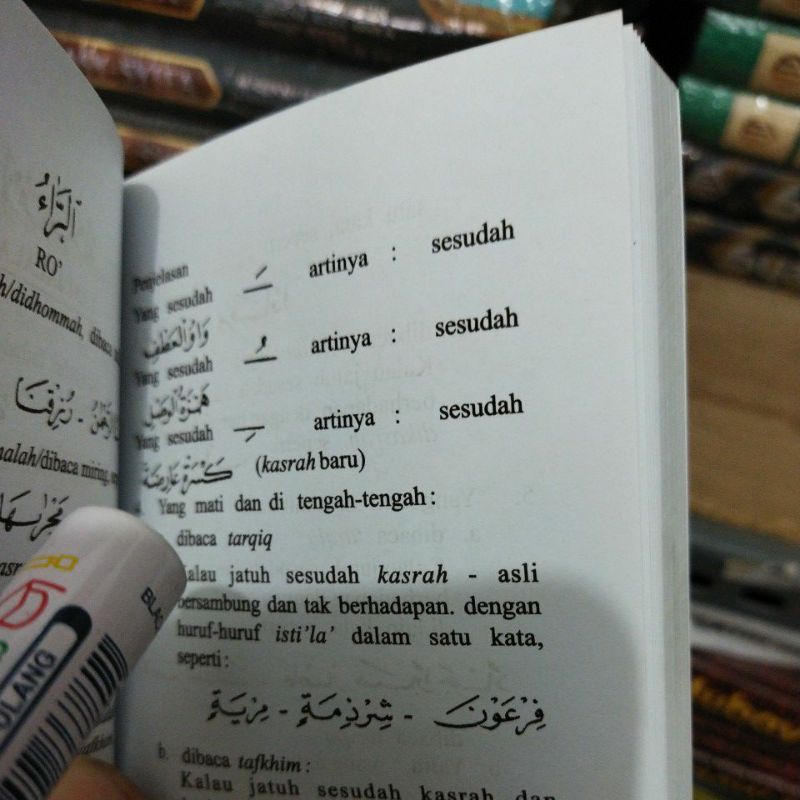 الرَّاءُ
RO'
h/didhommah, dibaca
رُزِقْنَا
malah/dibaca miring,
مَجْرٰىهَا
Penjelasan
Yang sesudah ـَ artinya : sesudah
وَاوُ الْعَطْفِ
Yang sesudah ـُ artinya : sesudah
هَمْزَةُ الْوَصْلِ
Yang sesudah ـِ artinya : sesudah
كَسْرَةٌ عَارِضَةٌ (kasrah baru)
Yang mati dan di tengah-tengah :
dibaca tarqiq
Kalau jatuh sesudah kasrah - asli
bersambung dan tak berhadapan. dengan
huruf-huruf isti'la' dalam satu kata,
seperti :
فِرْعَوْنَ - شِرْذِمَةٍ - مِرْيَةٍ
b. dibaca tafkhim :
Kalau jatuh sesudah kasrah dan
ULANG